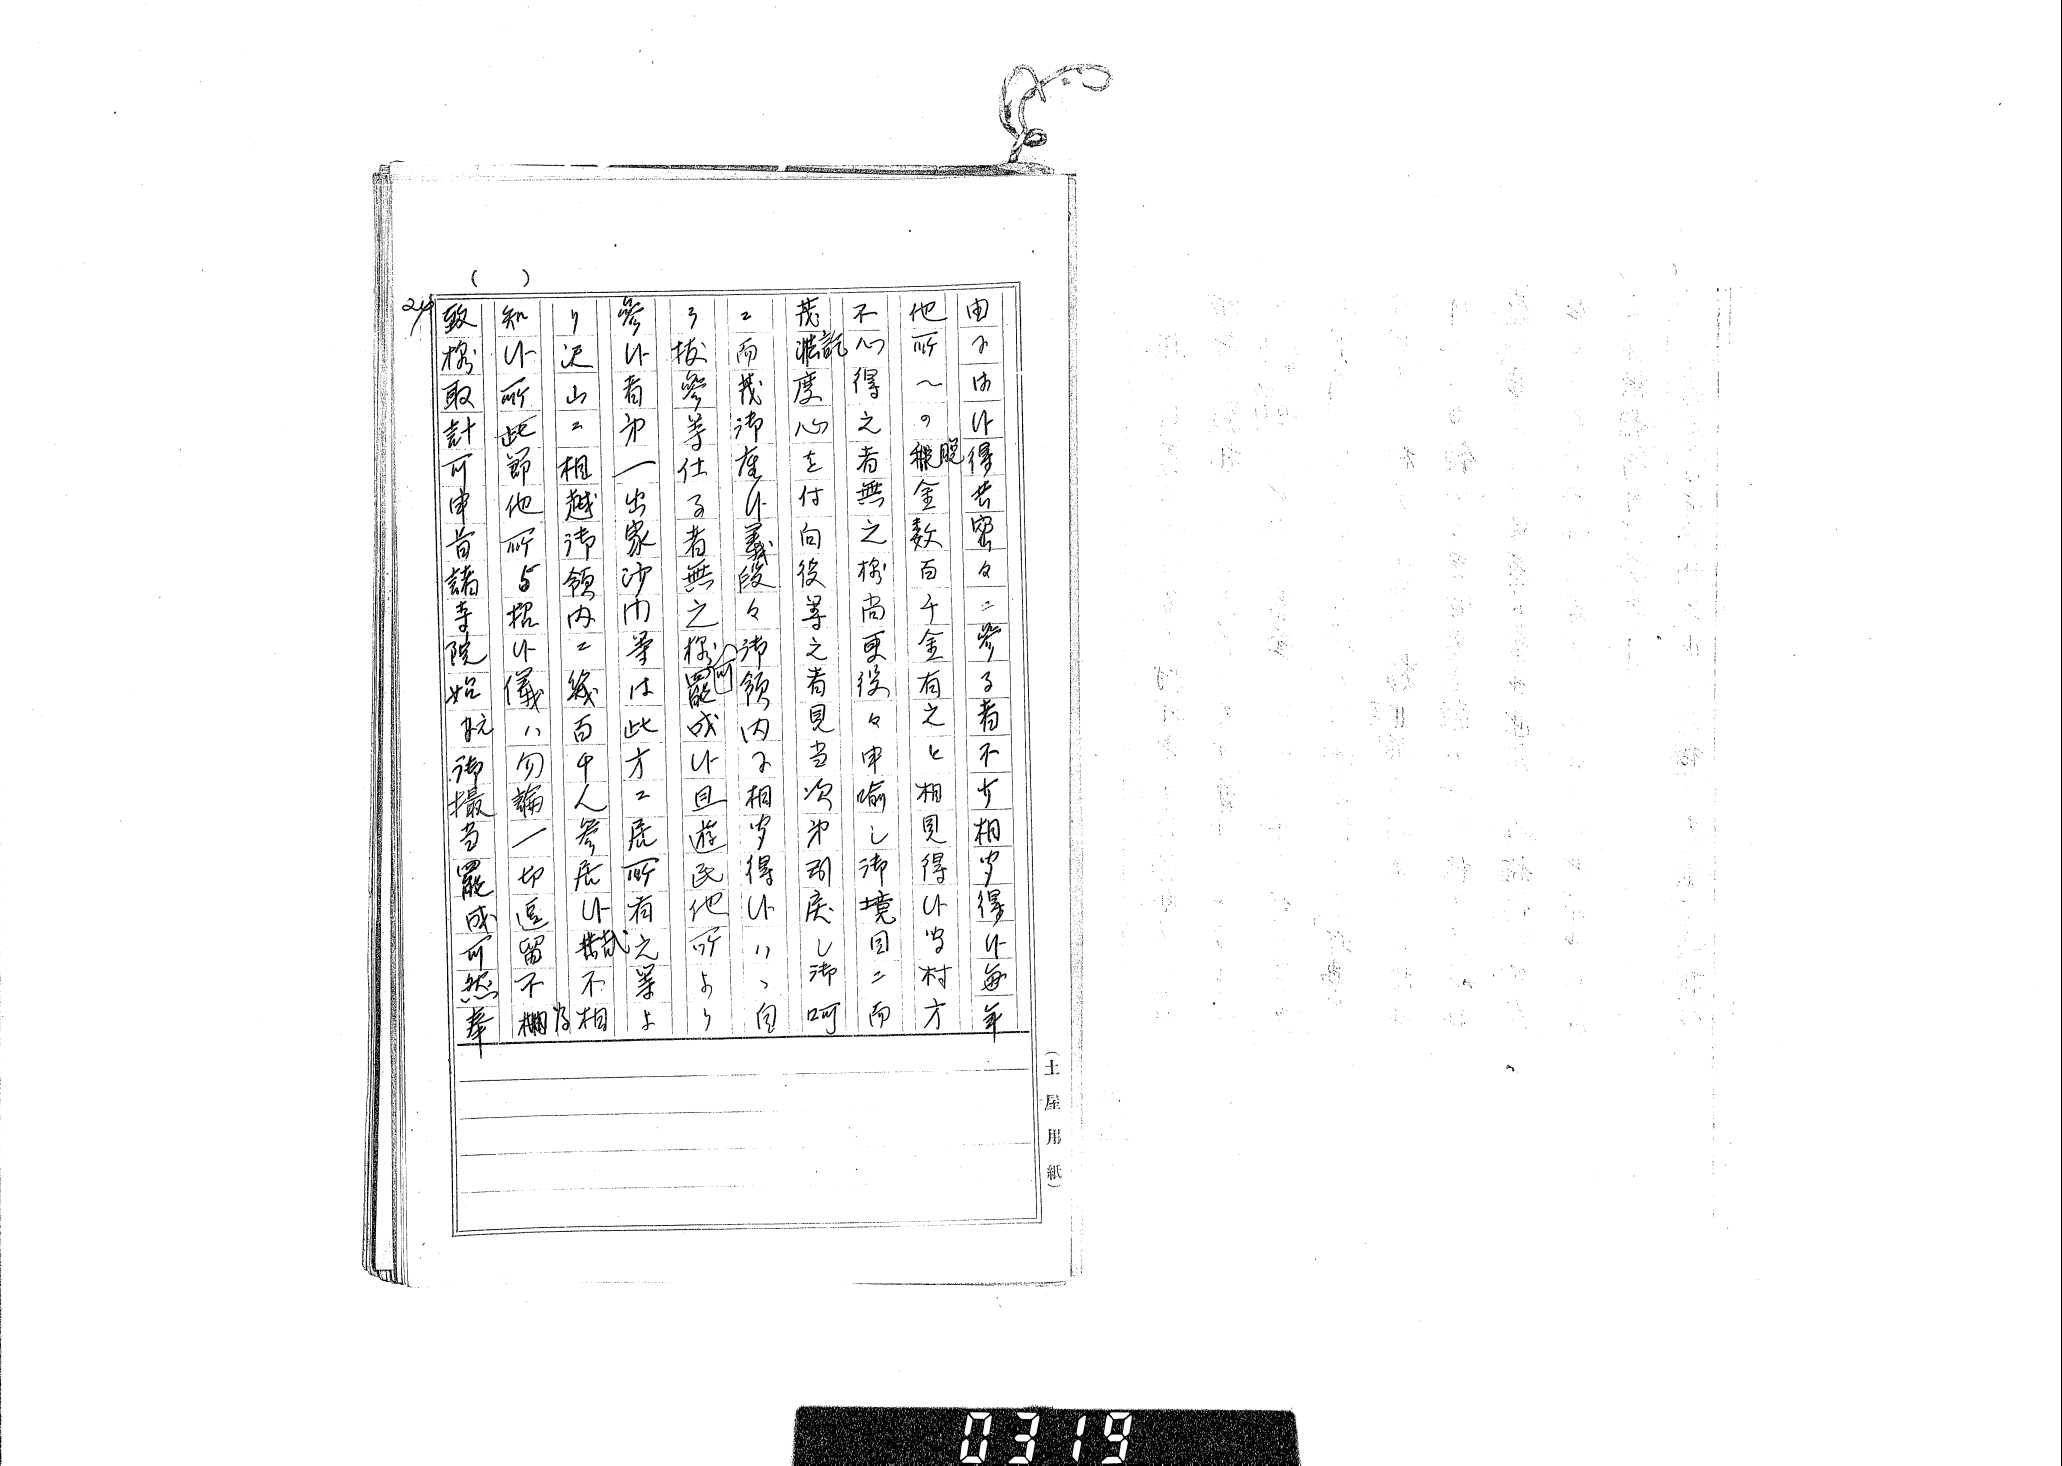 由ニ〻は候得共密々ニ参る者不少相守得候毎年
他所〜の税金数百千金有之と相見得候守村方
不心得之者無之様尚更役々申喩し御境目ニ而
茂度心を付向役等之者見当次第引戻し御呵
ニ而茂御座候義段々御領内〻相守得候ハヽ自
ら抜参等仕る者無之様可罷成候且遊民他所より
参候者第一出家沙門等は此方ニ居所有之等よ
り沢山ニ相越御領内ニ幾百千人参居候哉不相
知候所此節他所与招候儀ハ勿論一切逗留不為
致様取計可申旨諸寺院始御撮当罷成可然奉
(土屋用紙)
0319